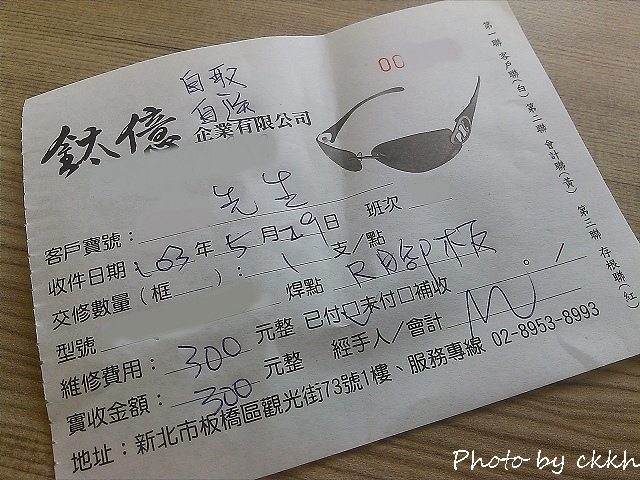 自取
自送
00
鈦億企業有限公司
第一聯 客戶聯(白) 第二聯 會計聯(黃) 第三聯 存根聯(紅)
客戶寶號：先生
收件日期：103年5月29日 班次
交修數量(框 )：1支/點
型號 焊點
維修費用：300元整 已付□未付□補收
實收金額：300元整 經手人/會計
地址：新北市板橋區觀光街73號1樓、服務專線 02-8953-8993
Photo by ckkh